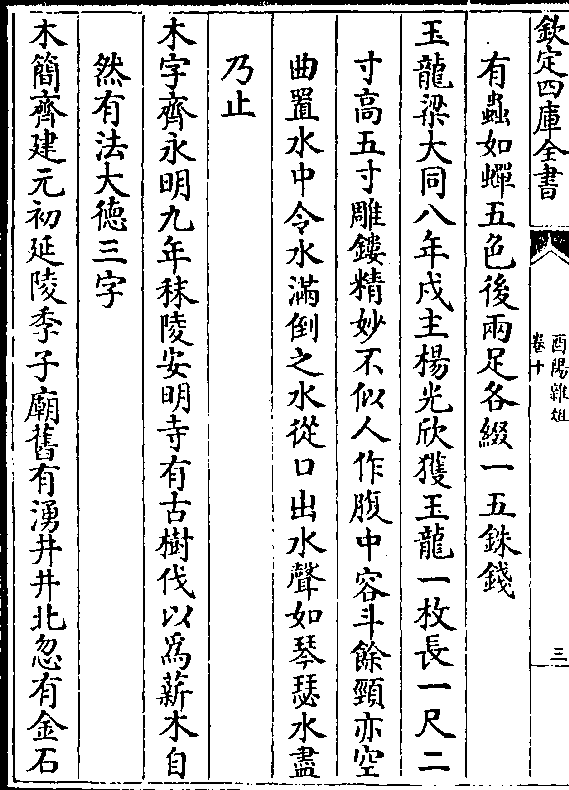 欽定四庫全書
酉陽雜俎
卷十
三
有蟲如蟬五色後兩足各綴一五銖錢
玉龍梁大同八年戍主楊光欣獲玉龍一枚長一尺二
寸高五寸雕鏤精妙不似人作腹中容斗餘頸亦空
曲置水中令水滿倒之水從口出水聲如琴瑟水盡
乃止
木字齊永明九年秣陵安明寺有古樹伐以為薪木自
然有法大徳三字
木簡齊建元初延陵季子廟舊有湧井井北忽有金石